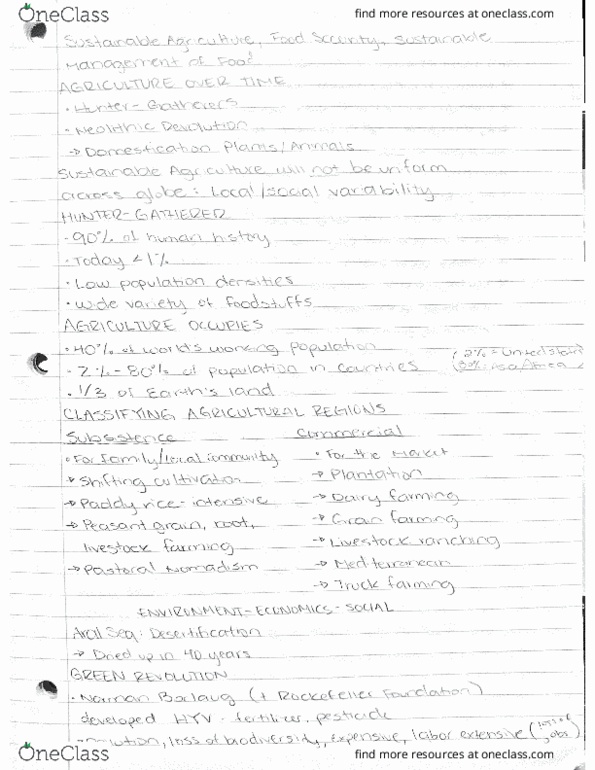 OneClass
find more resources at oneclass.com
Sustainable Agriculture, Food Security, Sustainable
Management of Food
AGRICULTURE OVER TIME
· Hunter-Gatherers
· Neolithic Devolution
→ Domestication Plants/Animals
Sustainable Agriculture will not be uniform
across globe: Local/social variability
HUNTER-GATHERED
· 90% of human history
· Today <1%
· Low population densities
· wide variety of foodstuffs
AGRICULTURE OCCUPIES
· 40% of world's working population
· 2% - 80% of population in countries (2% = United States
· 1/3 of Earth's land
CLASSIFYING AGRICULTURAL REGIONS
Subsistence Commercial
· For family/local community · For the Market
→ Shifting cultivation → Plantation
→ Paddy rice - intensive → Dairy farming
→ Peasant grain, root, → Grain farming
livestock farming → Livestock ranching
→ Pastoral Nomadism → Mediterranean
→ Truck farming
ENVIRONMENT - ECONOMICS - SOCIAL
Aral Sea: Desertification
→ Dried up in 40 years
GREEN REVOLUTION
· Norman Borlaug (+ Rockefeller Foundation)
developed HYV - fertilizer, pesticide
loss of biodiversity, expensive, labor extensive (jobs)
OneClass
find more resources at oneclass.com